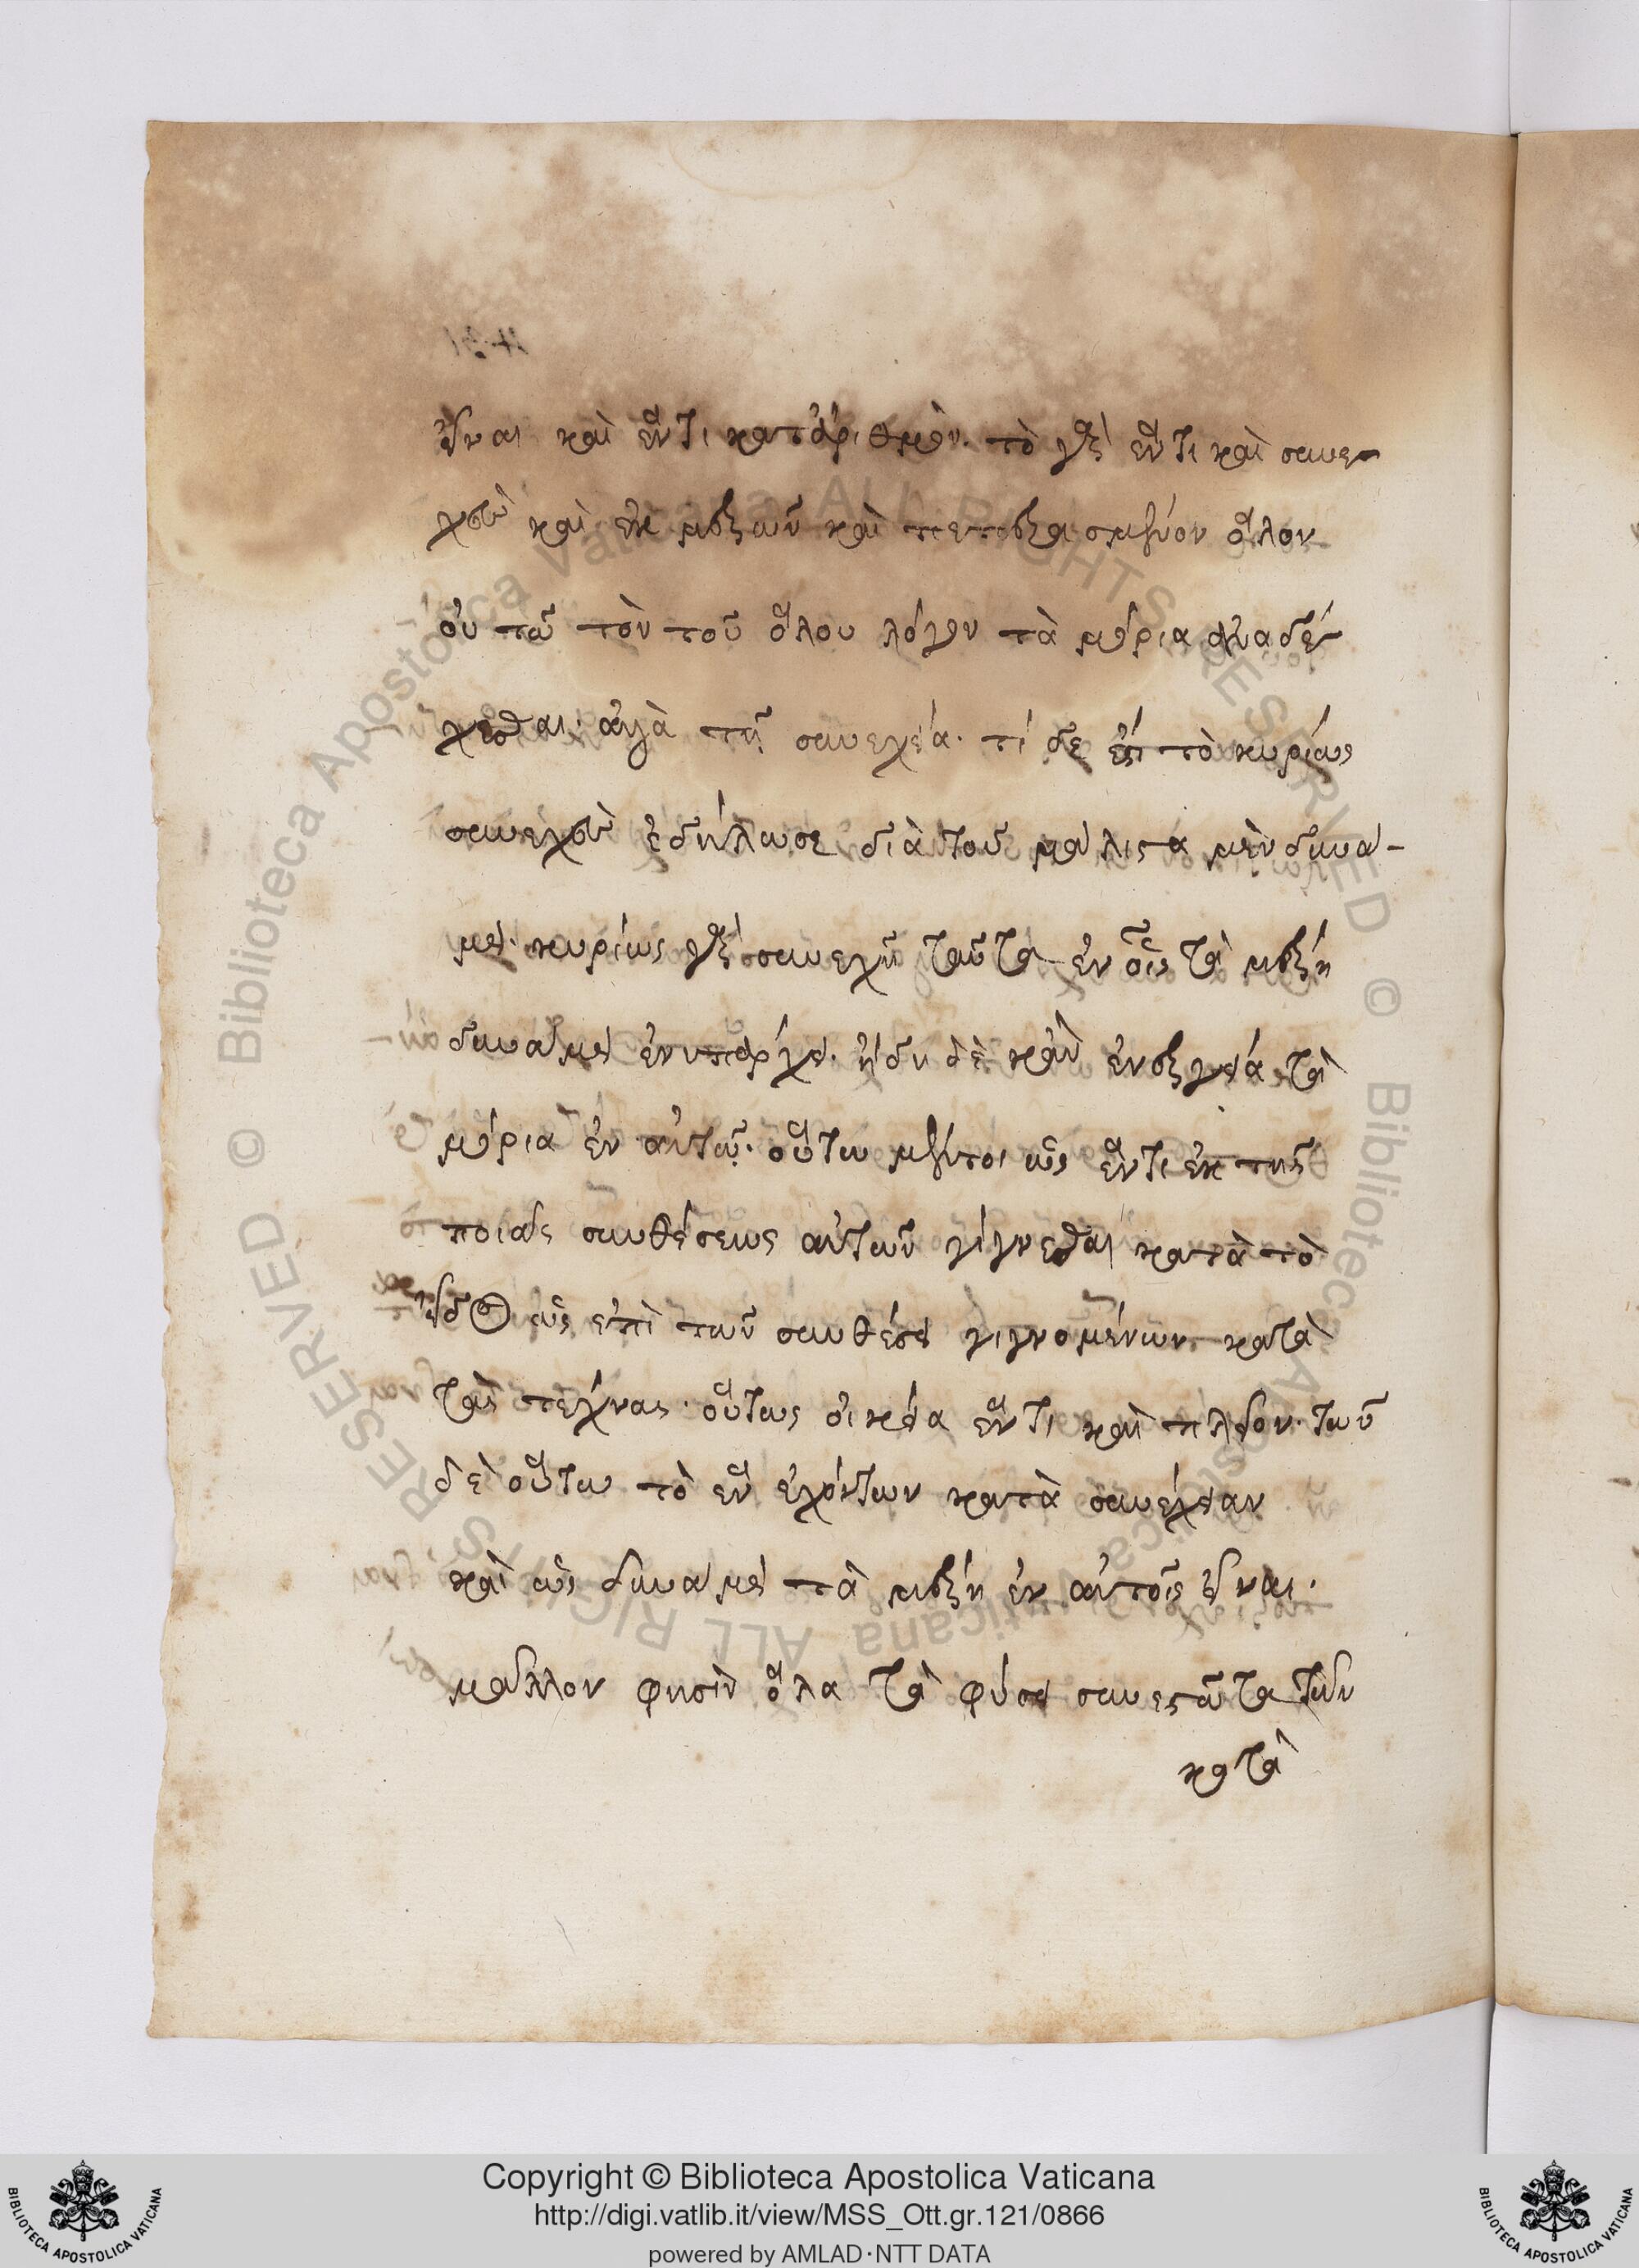 εἶναι καὶ ἕν τι κατ' ἀριθμόν. τὸ γὰρ ἕν τι καὶ συνε-
χὲς καὶ ἐκ μερῶν καὶ πεπερασμένον ὅλον
οὐ τῷ τὸν τοῦ ὅλου λόγον τὰ μόρια ἀναδέ-
χεσθαι. ἀλλὰ τῇ συνεχείᾳ. τί δε ἐστὶ τὸ κυρίως
συνεχὲς ἐδήλωσε διὰ τοῦ μάλιστα μὲν δυνά-
μει. κυρίως γὰρ συνεχῆ ταῦτα ἐν οἷς τὰ μέρη
δυνάμει ἐνυπάρχει. ἤδη δὲ κἂν ἐνεργείᾳ τὰ
μόρια ἐν αὐτῷ. οὕτω μέντοι ὡς ἕν τι ἐκ τῆς
ποιᾶς συνθέσεως αὐτῶν γίγνεσθαι κατὰ τὸ
εἶδος ὡς ἐπὶ τῶν συνθέσει γιγνομένων κατὰ
τὰς τέχνας. οὕτως οἰκία ἕν τι καὶ πλοῖον. τῶν
δὲ οὕτω τὸ ἓν ἐχόντων κατὰ συνέχειαν
καὶ ὡς δυνάμει τὰ μέρη ἐν αὐτοῖς εἶναι.
μᾶλλον φησὶν ὅλα τὰ φύσει συνεστῶτα τῶν
κατὰ
Copyright © Biblioteca Apostolica Vaticana
http://digi.vatlib.it/view/MSS_Ott.gr.121/0866
powered by AMLAD·NTT DATA
BIBLIOTECA APOSTOLICA VATICANA
BIBLIOTECA APOSTOLICA VATICANA
© Biblioteca Apostolica Vaticana ALL RIGHTS RESERVED © Biblioteca Apostolica Vaticana ALL RIGHTS RESERVED